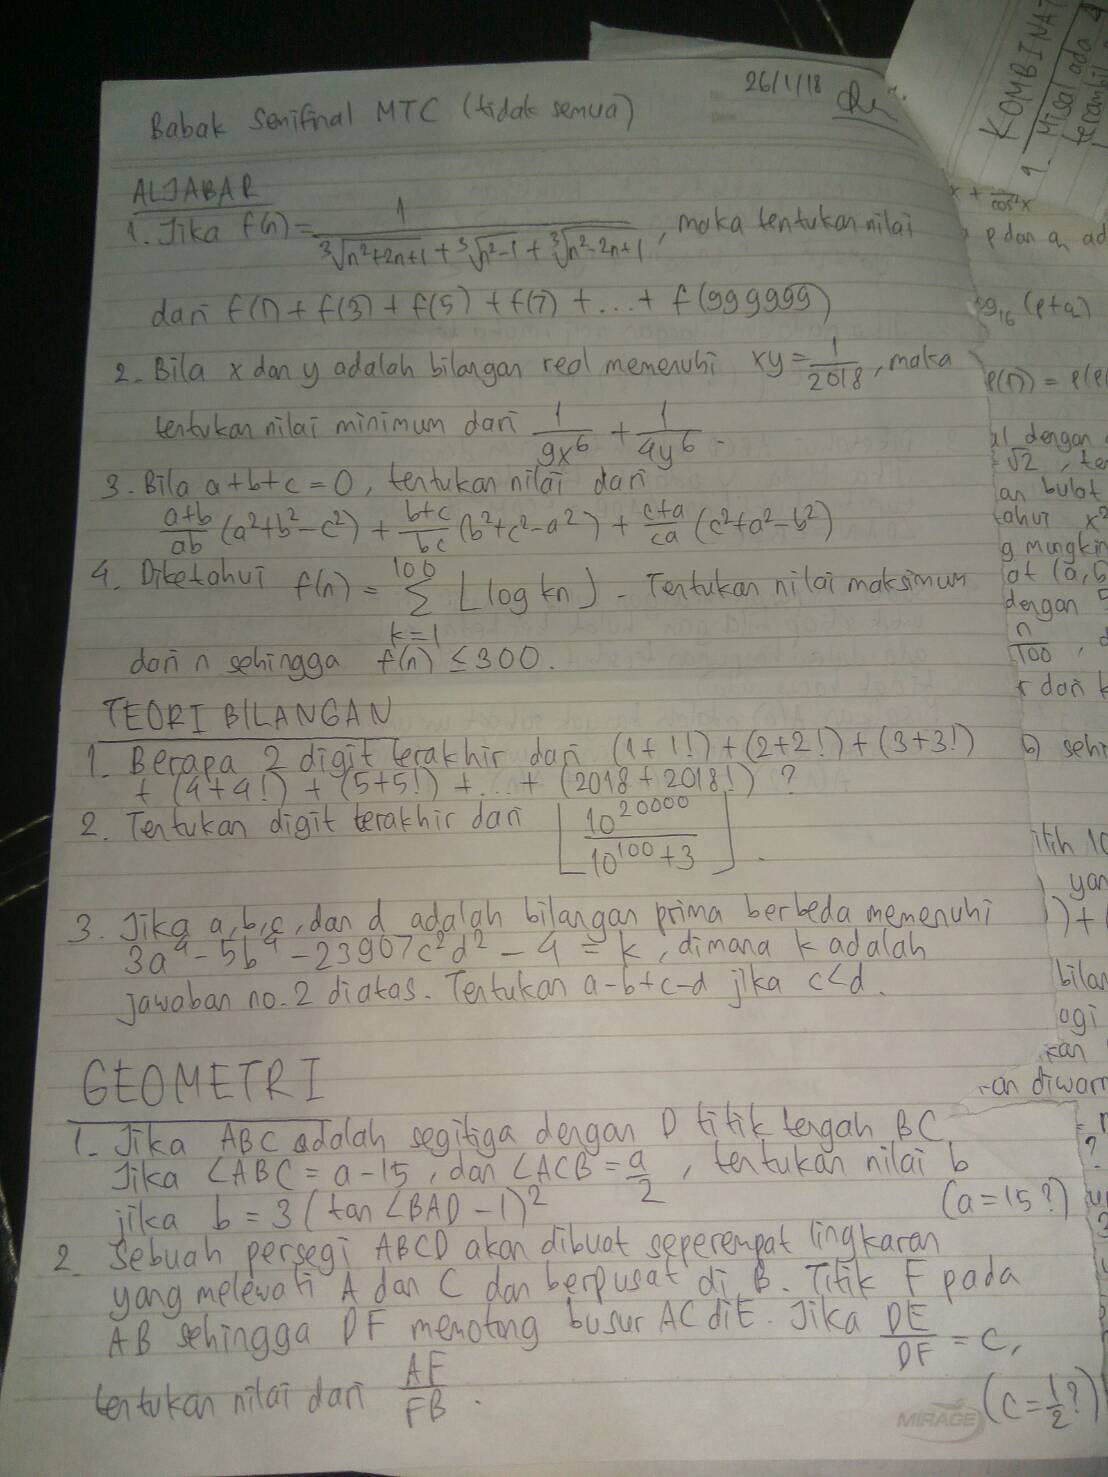 26/1/18
Babak Semifinal MTC (tidak semua)
ALJABAR
1. Jika f(n) = 1/(∛(n²+2n+1) + ∛(n²-1) + ∛(n²-2n+1)), maka tentukan nilai
dari f(1) + f(3) + f(5) + f(7) + ... + f(999999)
2. Bila x dan y adalah bilangan real memenuhi xy = 1/2018, maka
tentukan nilai minimum dari 1/(9x⁶) + 1/(4y⁶).
3. Bila a+b+c = 0, tentukan nilai dari
(a+b)/(ab) (a²+b²-c²) + (b+c)/(bc) (b²+c²-a²) + (c+a)/(ca) (c²+a²-b²)
4. Diketahui f(n) = Σ_{k=1}^{100} ⌊log kn⌋. Tentukan nilai maksimum
dari n sehingga f(n) ≤ 300.
TEORI BILANGAN
1. Berapa 2 digit terakhir dari (1+1!) + (2+2!) + (3+3!)
+ (4+4!) + (5+5!) + ... + (2018+2018!) ?
2. Tentukan digit terakhir dari ⌊10²⁰⁰⁰⁰/(10¹⁰⁰+3)⌋.
3. Jika a, b, c, dan d adalah bilangan prima berbeda memenuhi
3a⁴ - 5b⁴ - 23907c²d² - 4 = k, dimana k adalah
jawaban no. 2 diatas. Tentukan a-b+c-d jika c<d.
GEOMETRI
1. Jika ABC adalah segitiga dengan D titik tengah BC.
Jika ∠ABC = a-15, dan ∠ACB = a/2, tentukan nilai b
jika b = 3(tan∠BAD - 1)²
(a=15?)
2. Sebuah persegi ABCD akan dibuat seperempat lingkaran
yang melewati A dan C dan berpusat di B. Titik F pada
AB sehingga DF memotong busur AC di E. Jika DE/DF = c,
tentukan nilai dari AF/FB.
(c=1/2?)
MIRAGE
KOMBINAT
1. Misal ada 4
terambil
p dan q, ad
16 (p+q)
al dengan
√2, te
an bulat
tahui x²
g mungkin
at (a,b
dengan 5
n/100,
r dan k
b) sehi
ilih 10
yan
bilan
agi
kan
an diwarn